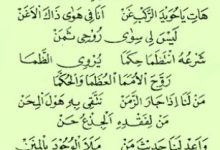 هَاتِ يَا حُوَيْدِ الرَّكْبِ عَنْ أَنَا فِي هَوَى ذَاكَ الأَغَنْ
لَيْسَ لِي سِوَى رُوحِي ثَمَنْ
شَرْعُهُ انْتَظَمَا حِكَمَا يُرْوِي الظَّمَا
رَوَّحَ الْأُمَمَا الْعُظَمَا وَالْحُكَمَا
مَنْ لَنَا إِذَا جَارَ الزَّمَنْ نَتَّقِي بِهِ هَوْلَ الْمِحَنْ
مَنْ لِفَقْدِهِ الْجِذْعُ حَنْ
وَاعِدْ لَنَا حَدِيثَ مَنْ مَلَأَ الْوُجُودَ بِالْمِنَنْ